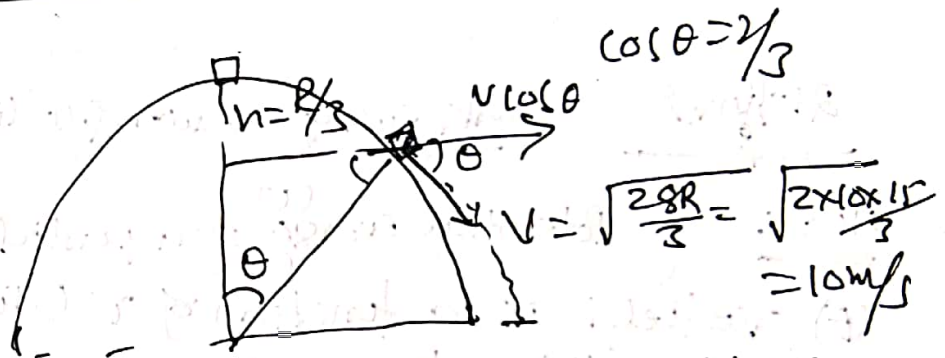 cosθ = 2/3
h = R/3
v cosθ
θ
V = √(2gR/3) = √(2×10×15/3)
θ
= 10 m/s